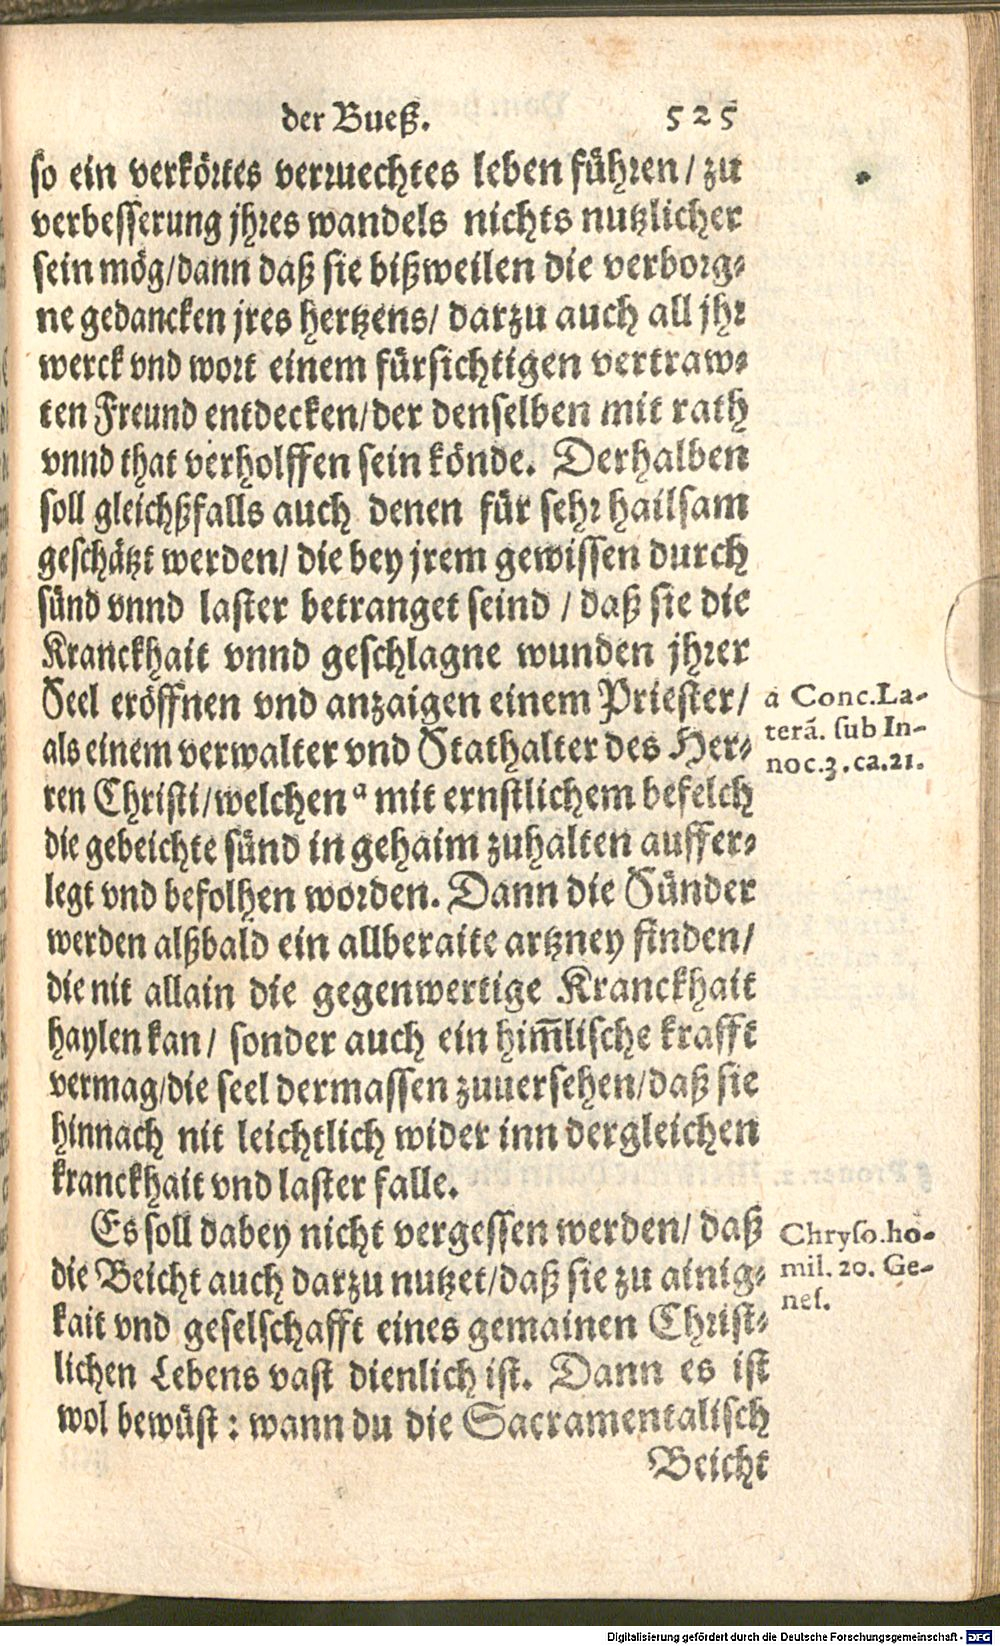 der Bueß. 525
so ein verkörtes verruechtes leben führen / zu
verbesserung jhres wandels nichts nutzlicher
sein mög/dann daß sie bißweilen die verborg⸗
ne gedancken jres hertzens/ darzu auch all jhr
werck vnd wort einem fürsichtigen vertraw⸗
ten Freund entdecken/der denselben mit rath
vnnd that verholffen sein könde. Derhalben
soll gleichßfalls auch denen für sehr hailsam
geschätzt werden/ die bey jrem gewissen durch
sünd vnnd laster betranget seind / daß sie die
Kranckhait vnnd geschlagne wunden jhrer
Seel eröffnen vnd anzaigen einem Priester/
als einem verwalter vnd Stathalter des Her⸗
ren Christi/welchen a mit ernstlichem befelch
die gebeichte sünd in gehaim zuhalten auffer⸗
legt vnd befolhen worden. Dann die Sünder
werden alßbald ein allberaite artzney finden/
die nit allain die gegenwertige Kranckhait
haylen kan/ sonder auch ein him̃lische krafft
vermag/die seel dermassen zuuersehen/daß sie
hinnach nit leichtlich wider inn dergleichen
kranckhait vnd laster falle.
Es soll dabey nicht vergessen werden/ daß
die Beicht auch darzu nutzet/daß sie zu ainig⸗
kait vnd geselschafft eines gemainen Christ⸗
lichen Lebens vast dienlich ist. Dann es ist
wol bewüst : wann du die Sacramentalisch
Beicht
a Conc.La-
terã. sub In-
noc.3.ca.21.
Chryso.ho-
mil. 20. Ge-
nes.
Digitalisierung gefördert durch die Deutsche Forschungsgemeinschaft - DFG